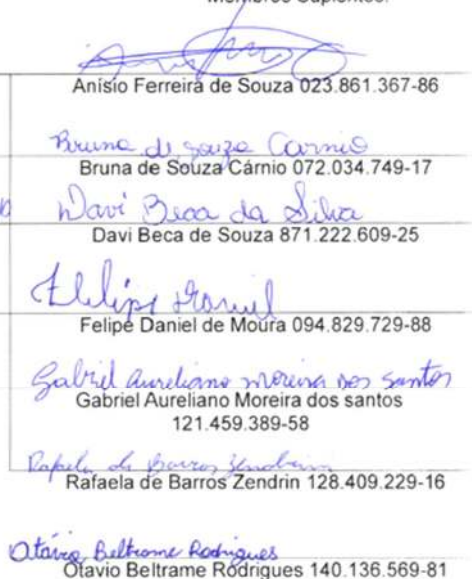 Membros Suplentes:
Anísio Ferreira de Souza 023.861.367-86
Bruna de Souza Carnio
Bruna de Souza Cárnio 072.034.749-17
Davi Beca da Silva
Davi Beca de Souza 871.222.609-25
Felipe Daniel
Felipe Daniel de Moura 094.829.729-88
Gabriel Aureliano moreira dos santos
Gabriel Aureliano Moreira dos santos
121.459.389-58
Rafaela de Barros Zendrin
Rafaela de Barros Zendrin 128.409.229-16
Otávio Beltrame Rodrigues
Otavio Beltrame Rodrigues 140.136.569-81